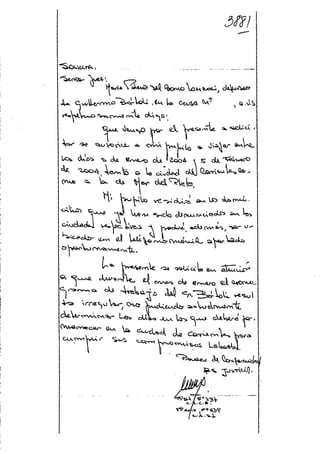 3881
Solicita.
Señor Juez:
María Romero del Bono Lonardi, defensora
de Guillermo Bártoli, en la causa N° , a V.S.
respetuosamente digo:
Que vengo por el presente a solici-
tar se autorice a mi pupilo a viajar entre
los días 5 de enero de 2004 y 5 de febrero
de 2004, tanto a la ciudad de Corrientes co-
mo a la de Mar del Plata.
Mi pupilo residirá en los domici-
lios que ya han sido denunciados en las
ciudades respectivas y podrá, además, ser u-
bicado en el teléfono móvil aportado
oportunamente.
La presente se solicita en atención
a que durante el mes de enero el crono-
grama de trabajo del Sr Bártoli, resul-
ta irregular, no pudiendo actualmente
determinar los días en los que deberá per-
manecer en la ciudad de Corrientes para
cumplir sus compromisos laborales.
Proveer de Conformidad
Es Justicia.